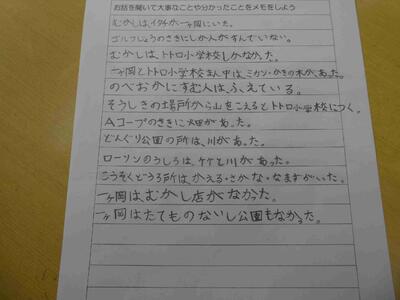 お話を聞いて大事なことや分かったことをメモをしよう
むかしは、イタチが一ヶ岡にいた。
ゴルフじょうのさきにしか人がすんでいない。
むかしは、トトロ小学校しかなかった。
一ヶ岡とトトロ小学校まん中は、ミカン・かきの木が、あった。
のべおかにすむ人は、ふえている。
そうしきの場所から山をこえるとトトロ小学校につく。
Aコープのさきに畑があった。
どんぐり公園の所は、川があった。
ローソンのうしろは、竹と川があった。
こうそくどうろ所は、かえる・さかな・なまずがいた。
一ヶ岡は、むかし店がなかった。
一ヶ岡はたてものないし公園もなかった。